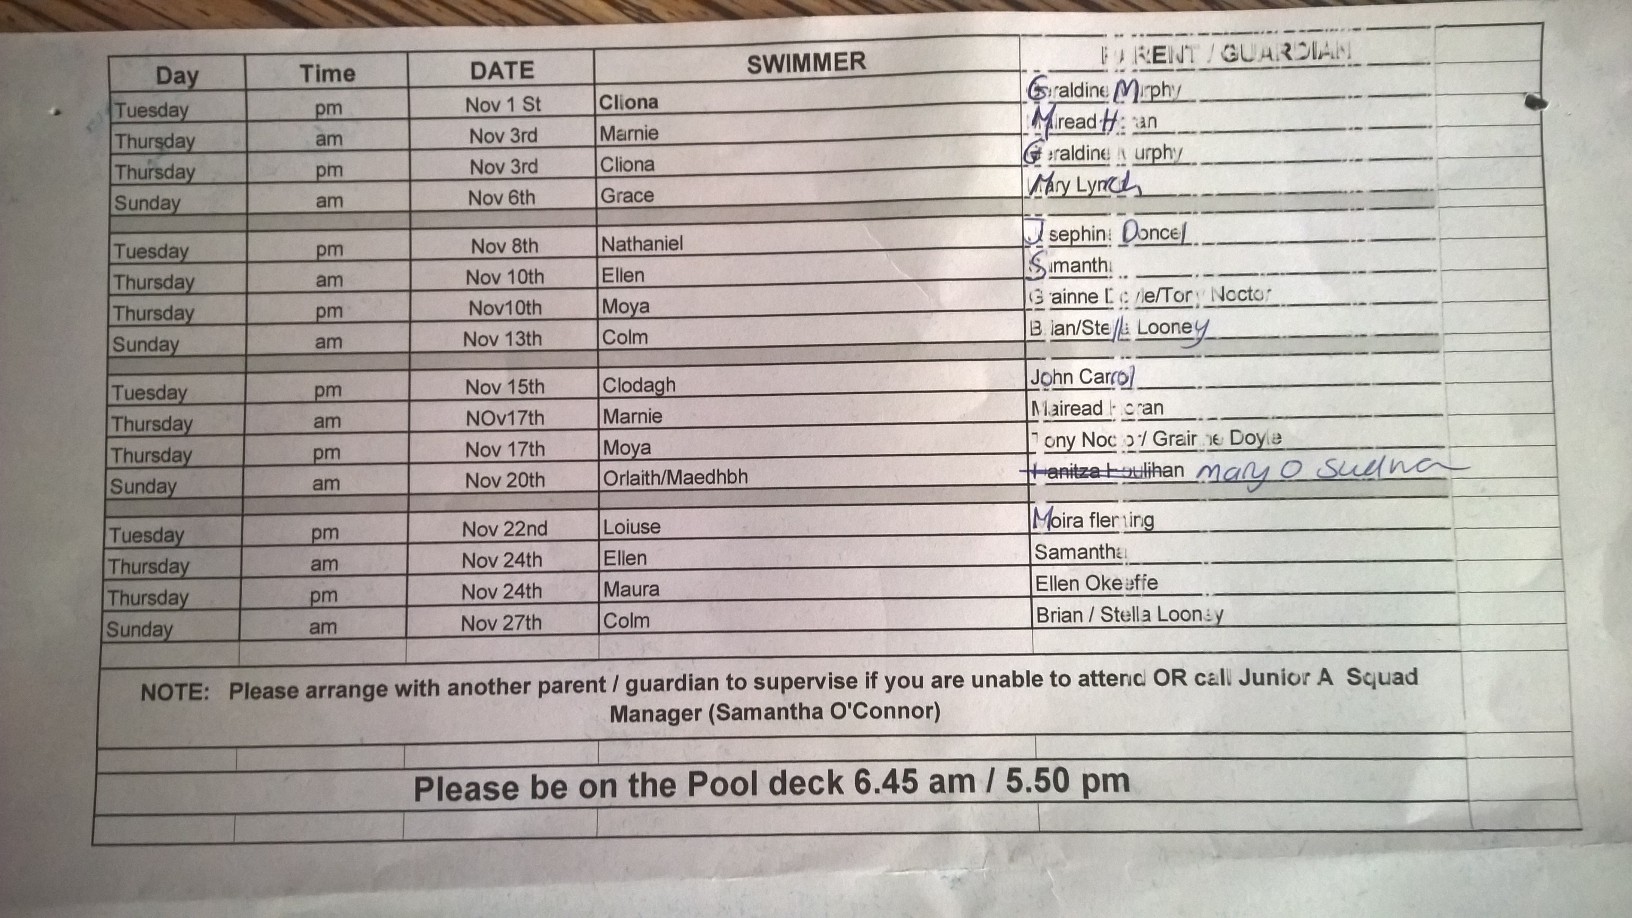 Day Time DATE SWIMMER PARENT / GUARDIAN
Tuesday pm Nov 1 St Cliona Geraldine Murphy
Thursday am Nov 3rd Marnie Miread Horan
Thursday pm Nov 3rd Cliona Geraldine Murphy
Sunday am Nov 6th Grace Mary Lynch
Tuesday pm Nov 8th Nathaniel Josephine Doncel
Thursday am Nov 10th Ellen Samantha
Thursday pm Nov10th Moya Grainne Doyle/Tony Noctor
Sunday am Nov 13th Colm Brian/Stella Looney
Tuesday pm Nov 15th Clodagh John Carrol
Thursday am NOv17th Marnie Mairead Horan
Thursday pm Nov 17th Moya Tony Noctor/ Grainne Doyle
Sunday am Nov 20th Orlaith/Maedhbh Hanitza Houlihan mary O
Tuesday pm Nov 22nd Loiuse Moira fleming
Thursday am Nov 24th Ellen Samantha
Thursday pm Nov 24th Maura Ellen Okeeffe
Sunday am Nov 27th Colm Brian / Stella Looney
NOTE: Please arrange with another parent / guardian to supervise if you are unable to attend OR call Junior A Squad
Manager (Samantha O'Connor)
Please be on the Pool deck 6.45 am / 5.50 pm